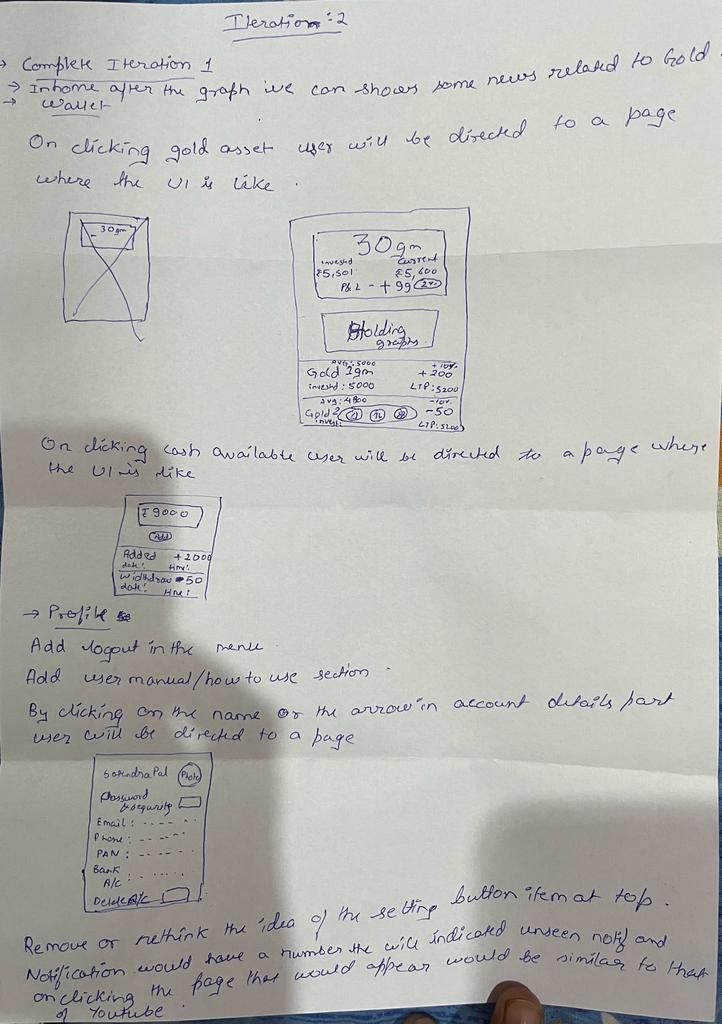 Iteration :- 2
→ Complete Iteration 1
→ In home after the graph we can shows some news related to Gold.
→ Wallet
On clicking gold asset user will be directed to a page
where the UI is like .
30gm
30gm
Invested Current
₹5,501 ₹5,600
P&L - +99 2%
Holding
graphs
Avg: 5000 +10%
Gold 1gm +200
invested: 5000 LTP: 5200
Avg: 4800 -10%
Gold 2 -50
invest: LTP: 5200
On clicking cash available user will be directed to a page where
the UI is like
₹9000
Add
Added +2000
date: time:
Widthdraw 50
date: time:
→ Profile
Add logout in the menu
Add user manual/how to use section .
By clicking on the name or the arrow in account details part
user will be directed to a page
Photo
Password
& sequrity
Email : - - - - - -
Phone : - - - - -
PAN : - - - - -
Bank
A/C : . . . . . .
Delete A/C
Remove or rethink the idea of the setting button item at top .
Notification would have a number the will indicated unseen notif and
on clicking the page that would appear would be similar to that
of Youtube .